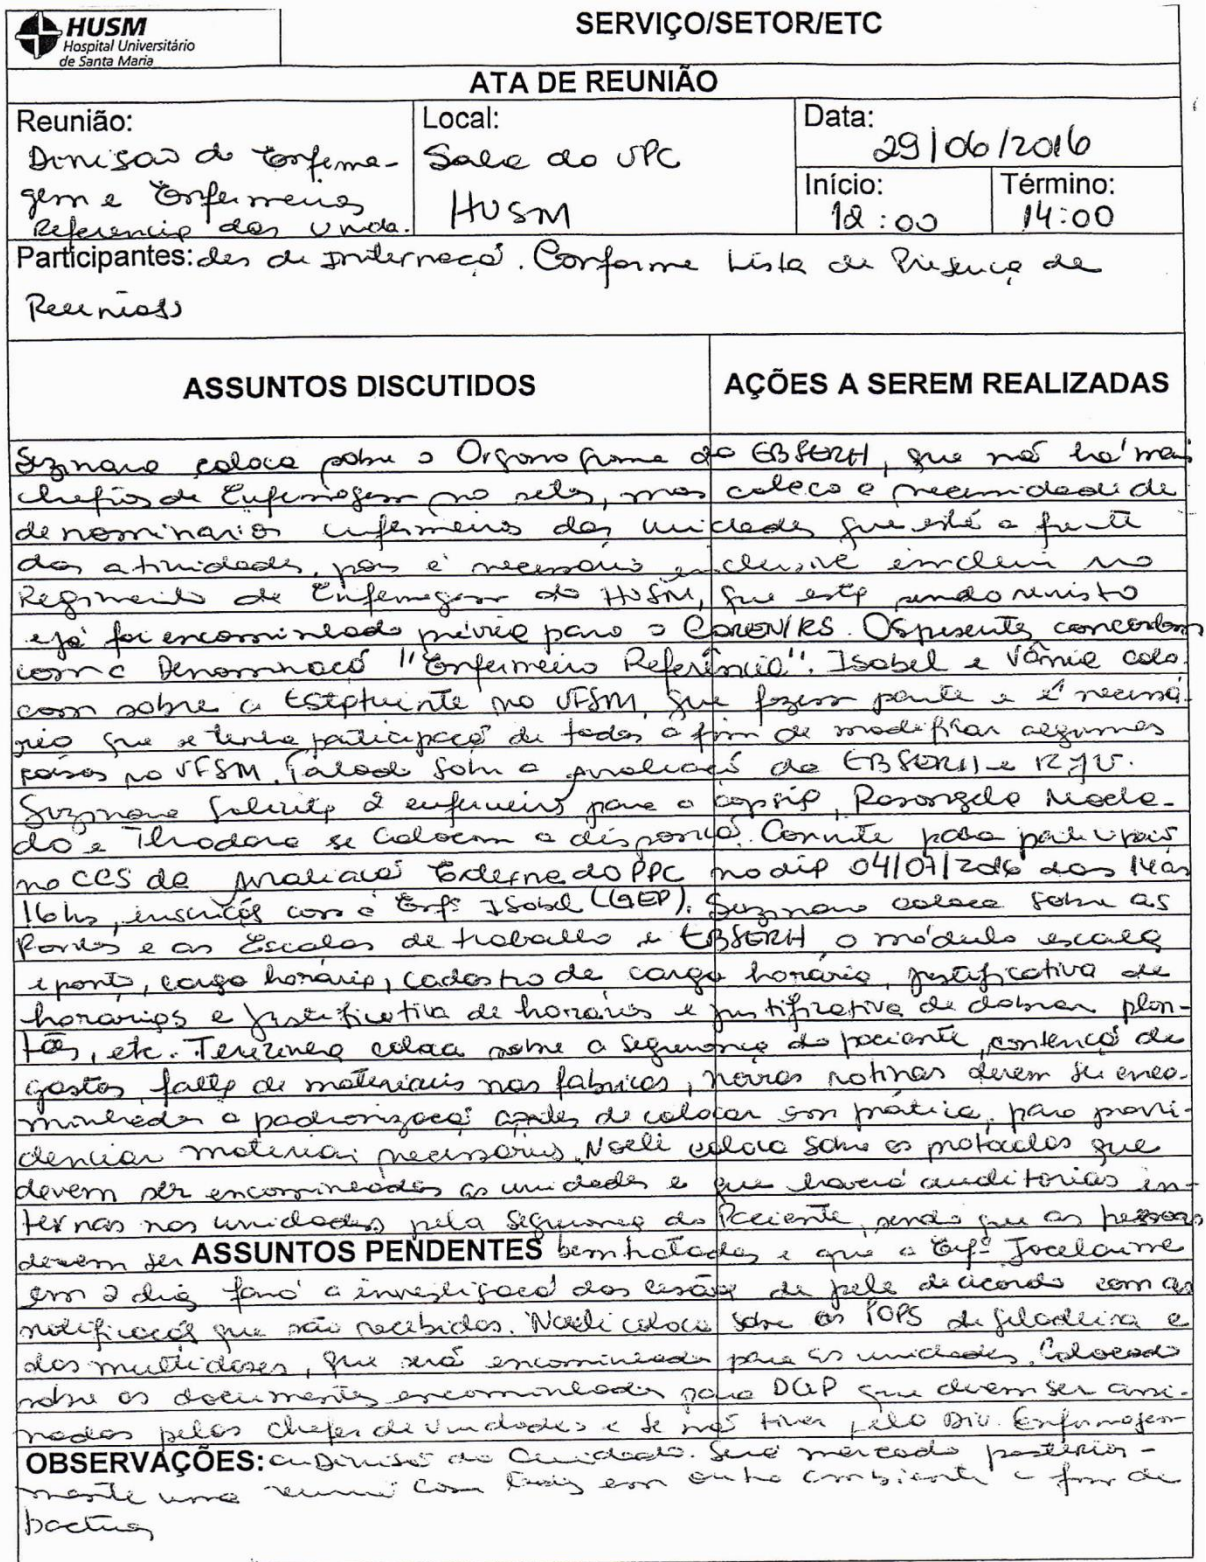 HUSM
Hospital Universitário
de Santa Maria
SERVIÇO/SETOR/ETC
ATA DE REUNIÃO
Reunião:
Divisão de Enferma-
gem e Enfermeiros
Referencia das Unida.
Local:
Sala da UPC
HUSM
Data:
29/06/2016
Início:
12:00
Término:
14:00
Participantes: des de Internaçaõ. Conforme Lista de Presença de
Reuniões
ASSUNTOS DISCUTIDOS
AÇÕES A SEREM REALIZADAS
Suzinara coloca sobre o Organograma da EBSERH, que não há mais
chefias de Enfermagem no setor, mas coloca a necessidade de
denominar os enfermeiros das unidades que está a frente
das atividades, pois é necessário inclusive incluir no
Regimento de Enfermagem do HUSM, que está sendo revisto
e já foi encaminhado prévia para o COREN/RS. Os presentes concordam
com a Denominaçaõ "Enfermeiro Referência". Isabel e Vânia colo
cam sobre a Estatuinte na UFSM, que fazem parte e é necessá
rio que se tenha participaçaõ de todos a fim de modificar algumas
coisas na UFSM. Falado sobre a avaliaçaõ da EBSERH e RJU.
Suzinara solicita 2 enfermeiros para a Rosangela Macha-
do e Theodora se colocam a disposiçaõ. Convite para participar
no CCS da avaliaçaõ Externa do PPC no dia 04/07/2016 das 14 às
16 hs, inscriçaõ com a Enfª Isabel (GEP). Suzinara coloca sobre as
Pontos e as Escalas de trabalho e EBSERH o módulo escala
e ponto, carga horária, cadastro de carga horária, justificativa de
horarios e justificativa de horários e justificativa de dobrar plan-
tões, etc. Terezinha coloca sobre a segurança do paciente, contençaõ de
gastos, falta de materiais nas fabricas, novas rotinas devem ser enca-
minhadas a padronizaçaõ antes de colocar em prática, para provi-
denciar materiais necessários. Noeli coloca sobre os protocolos que
devem ser encaminhados as unidades e que haverá auditorias in-
ternas nas unidades pela Segurança do Paciente, sendo que as pessoas
devem ser ASSUNTOS PENDENTES bem tratadas e que a Enfª Jocelaine
em 2 dias fará a investigaçaõ das lesões de pele de acordo com as
notificações que são recebidas. Noeli coloca sobre os POPS de geladeira e
dos multidoses, que será encaminhado para as unidades. Colocado
sobre os documentos encaminhados para DGP que devem ser assi-
nados pelos chefes de unidades e se não tiver pela Div. Enfermagem
OBSERVAÇÕES: ou Divisão do Cuidado. Será marcado posterior-
mente uma reunião com em outro ambiente a fim de
pactuar